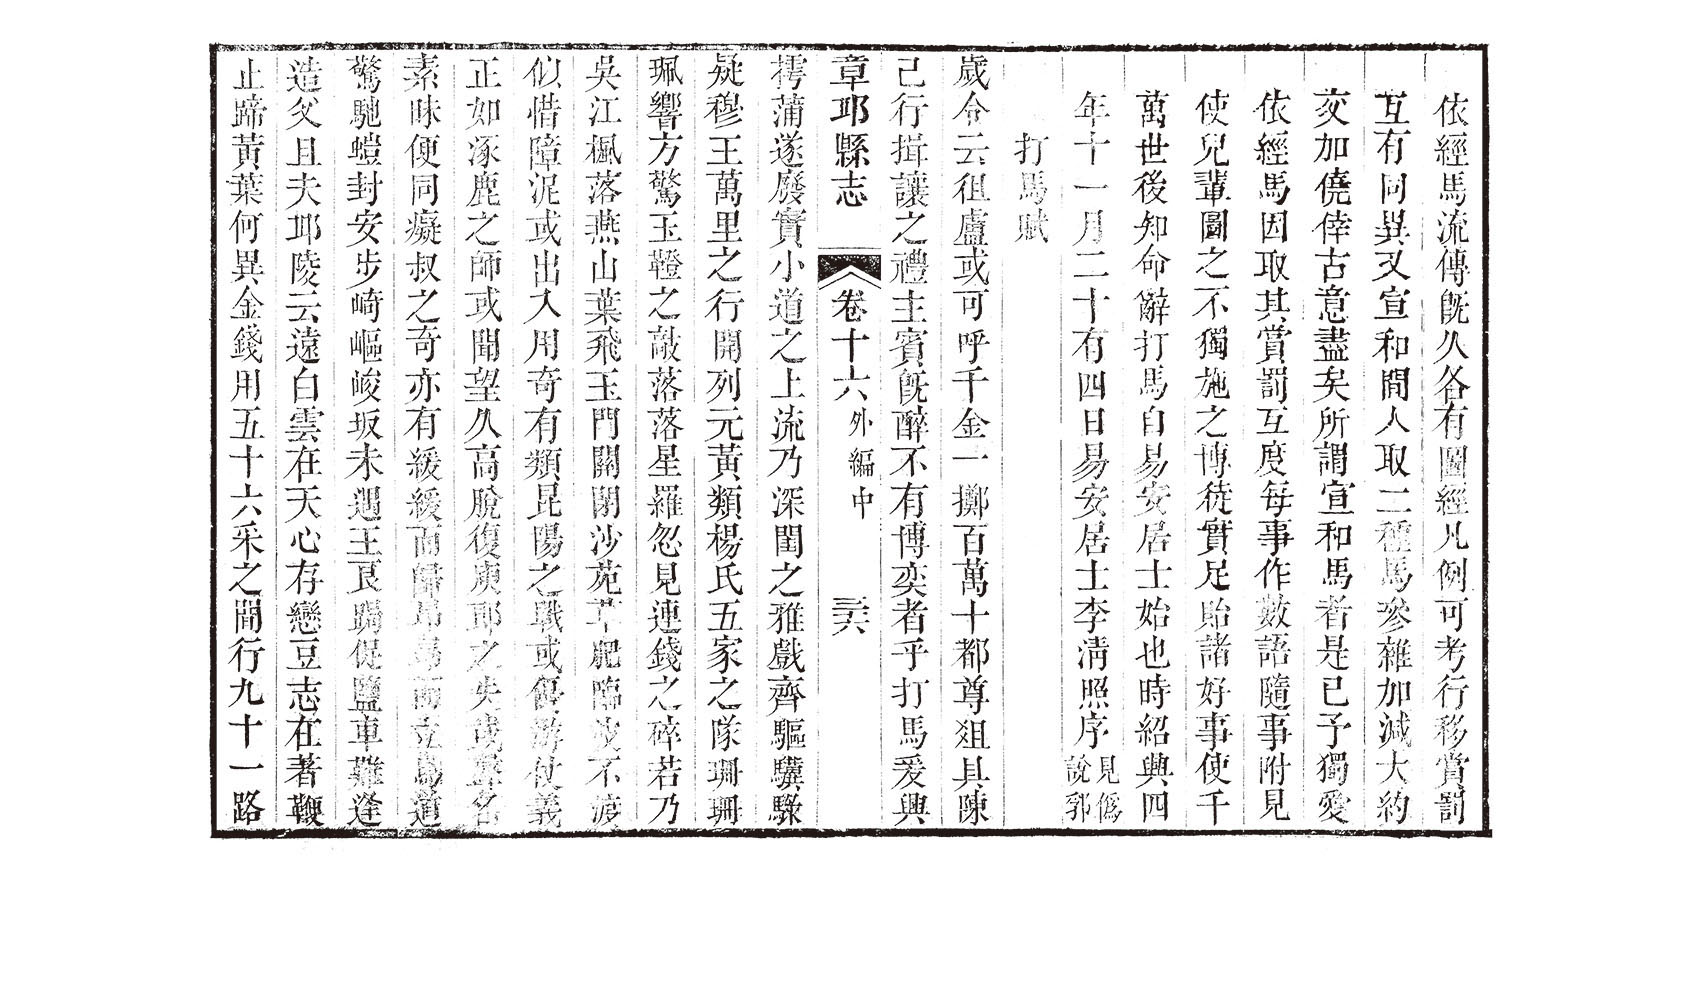 依經馬流傳旣久各有圖經凡例可考行移賞罰
互有同異又宣和間人取二種馬參雜加減大約
交加僥倖古意盡矣所謂宣和馬者是已予獨愛
依經馬因取其賞罰互度每事作數語隨事附見
使兒輩圖之不獨施之博徒實足貽諸好事使千
萬世後知命辭打馬自易安居士始也時紹興四
年十一月二十有四日易安居士李淸照序見僞說郛
打馬賦
歲令云徂盧或可呼千金一擲百萬十都尊俎具陳
己行揖讓之禮主賓旣醉不有博奕者乎打馬爰興
摴蒲遂廢實小道之上流乃深閨之雅戲齊驅驥騄
疑穆王萬里之行開列元黃類楊氏五家之隊珊珊
珮響方驚玉鞚之敲落落星羅忽見連錢之碎若乃
吳江楓落燕山葉飛玉門關閉沙苑草肥臨波不渡
似惜障泥或出入用奇有類昆陽之戰或優游仗義
正如涿鹿之師或聞望久高脫復庾郞之失或聲名
素昧便同癡叔之奇亦有緩緩而歸昂昂而立鳥道
驚馳螘封安步崎嶇峻坂未遇王良跼促鹽車難逢
造父且夫邱陵云遠白雲在天心存戀豆志在著鞭
止蹄黃葉何異金錢用五十六采之間行九十一路
章邱縣志
卷十六 外編中
三六